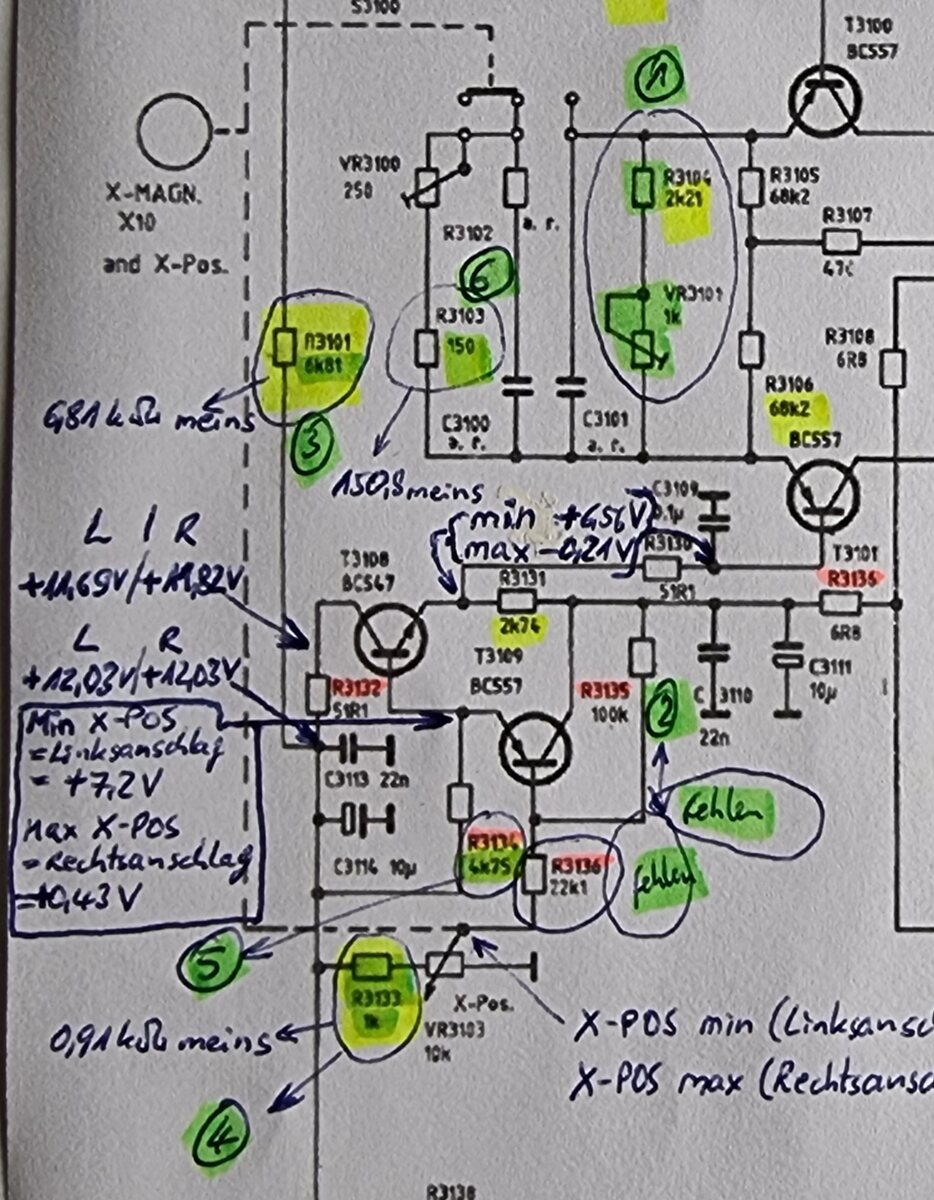 S3100
T3100
BC557
1
VR3100
250
X-MAGN.
X10
and X-Pos.
R3104
2k21
R3105
68k2
a. r.
R3102
R3107
6
VR3101
1k
R3103
150
R3101
6k81
R3108
6R8
R3106
68k2
6,81 kΩ meins
3
C3100
a. r.
C3101
a. r.
BC557
150,8 meins
C3109
0.1µ
L / R
min
max -0,21V
T3108
BC547
R3130
T3101
+11,69V/+11,82V
R3131
51R1
2k74
6R8
L R
T3109
C3111
10µ
+12,03V/+12,03V
R3132
51R1
BC557
R3135
100k
2
C 3110
22n
Min X-POS
= Linksanschlag
= +7,2V
C3113 22n
fehlen
Max X-POS
= Rechtsanschlag
R3134
4k75
C3114 10µ
R3136
22k1
fehlen
5
R3133
1k
X-Pos.
VR3103
10k
0,91 kΩ meins
X-POS min
X-POS max
4
R3138